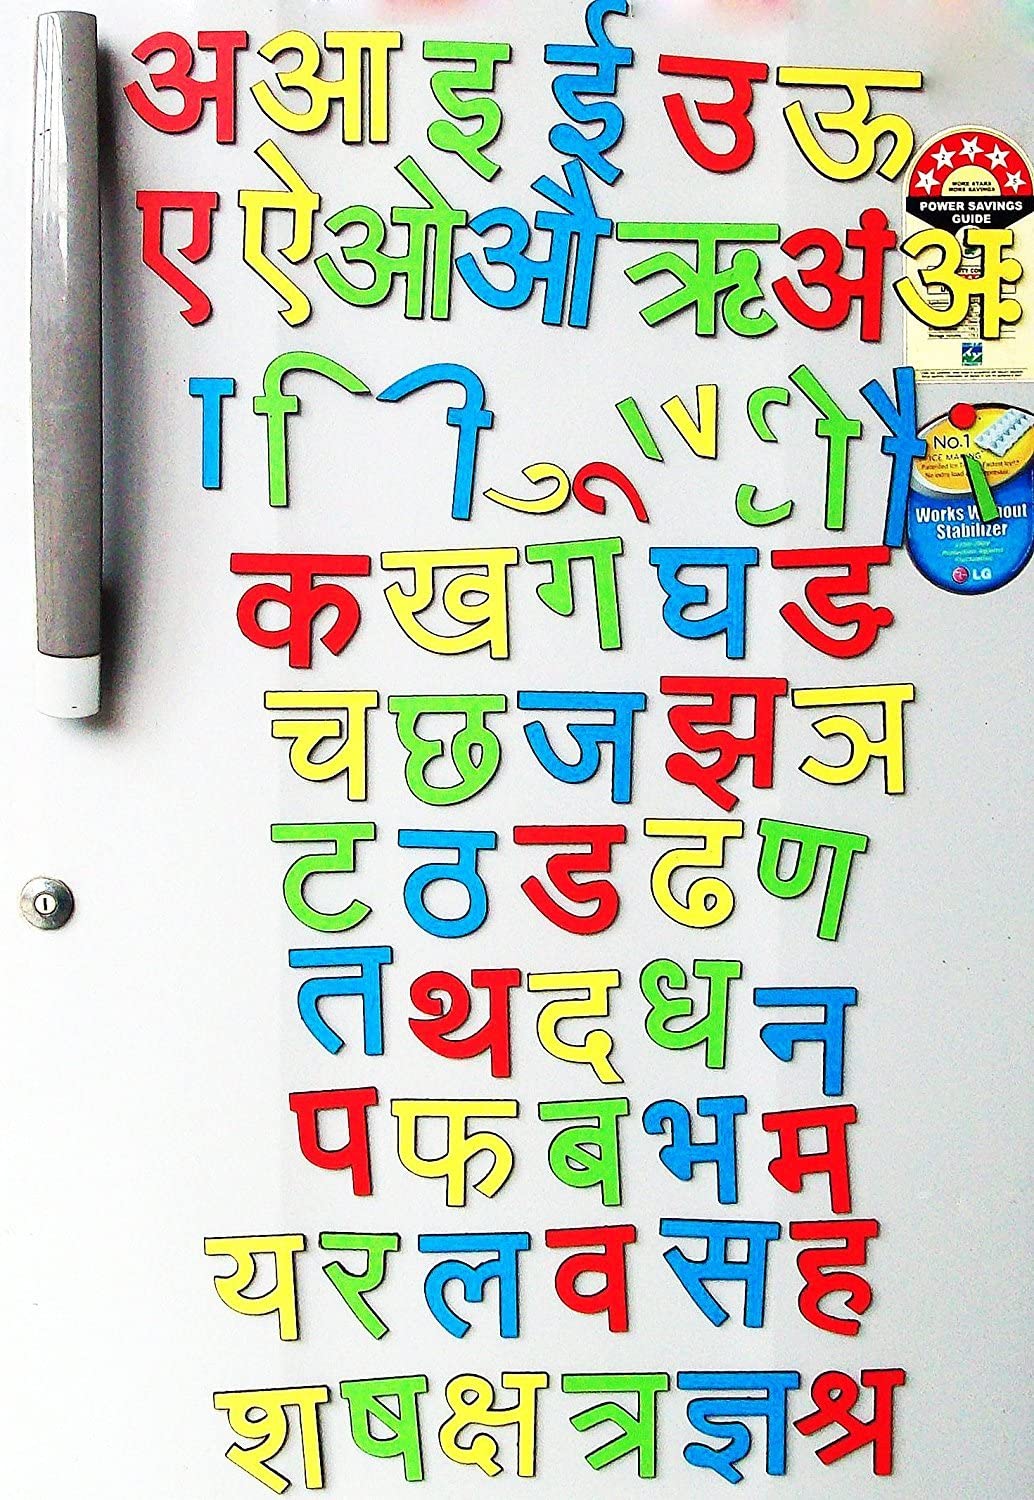 अ आ इ ई उ ऊ
MORE STARS
MORE SAVINGS
POWER SAVINGS
GUIDE
ए ऐ ओ औ ऋ अं अः
ा ि ी ु ू े ै ृ ो ौ ं ्
No.1
ICE MAKING
Works Without
Stabilizer
LG
क ख ग घ ङ
च छ ज झ ञ
ट ठ ड ढ ण
त थ द ध न
प फ ब भ म
य र ल व स ह
श ष क्ष त्र ज्ञ श्र